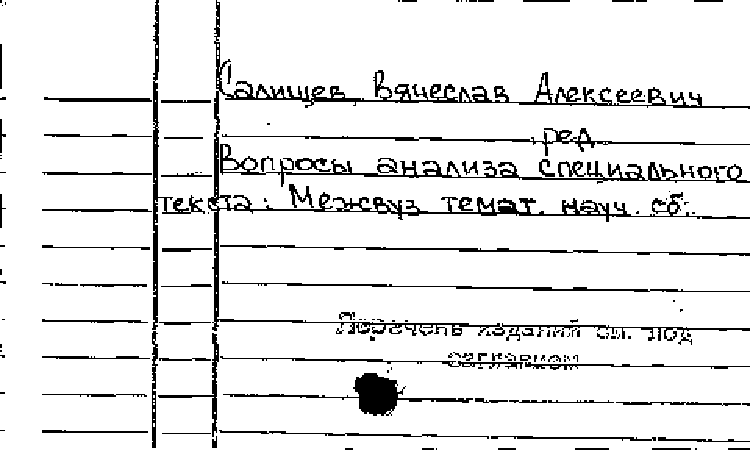 Салищев, Вячеслав Алексеевич
ред.
Вопросы анализа специального
текста: Межвуз. темат. науч. сб.
Перечень изданий см. под
заглавием